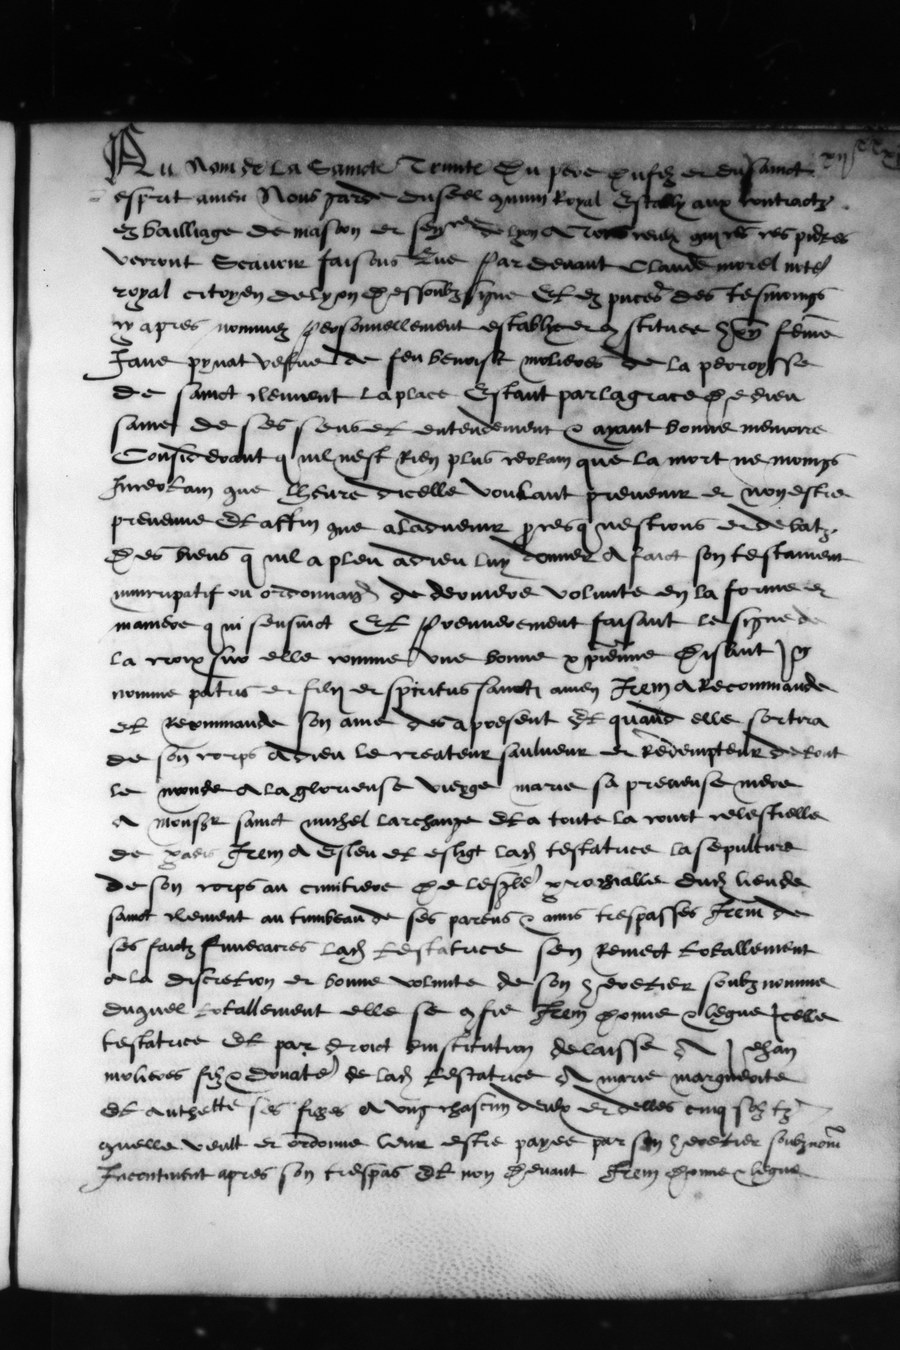 Au Nom de La Saincte Trinite Du pere Du filz et du sainct
esprit amen Nous garde du seel commun Royal Estably aux contractz
ez bailliage de mascon et sen^cee de lyon A Tous ceulx qui ces p^ntes
verront Scavoir faisons Que Par devant Claude morel not^e
royal citoyen de lyon Dessoubz signe Et ez p^nces des tesmoings
cy apres nommez personnellement establye et constituee h^ble feme
Jane pynat vefve de feu benoist molieres de la parroysse
de sainct clement la place Estant par la grace De dieu
saine de ses sens et entendement & ayant bonne memoire
Considerant quil nest Rien plus certain que la mort ne moings
Incertain que lheure dicelle voulant prevenir et non estre
prevenue Et affin que a ladvenir proces questions et debatz
Des biens quil a pleu a dieu luy donner A faict son testament
nuncupatif ou ordonnan^ce de derniere volunte en la forme et
maniere qui sensuict Et Premierement faisant le signe de
la croix sur elle comme une bonne xp^ienne Disant In
nomine patris et filii et spiritus sancti amen Item A Recommande
et Recommande son ame des a present Et quand elle sortira
de son corps A dieu le createur saulveur et Redempteur de tout
le monde A la glorieuse vierge marie sa precieuse mere
A mons^r sainct michel larchange Et a toute la court celestielle
de paradis Item A Esleu et eslist lad^e testatrice la sepulture
de son corps au cimitiere De lesgl^e parrochialle dud^t lieu de
sainct clement au tumbeau de ses parens & amis trespasses Item de
ses faictz funeraires lad^e testatrice sen remect totallement
a la discretion et bonne volunte de son heretier soubz nomme
duquel totallement elle se confie Item Donne & legue Icelle
testatrice Et par droict dinstitution delaisse A Jehan
molieres filz & donat^e de lad^e testatrice A marie marguerite
Et Anthette ses filles A ung chascun deulx et delles cinq solz tz
quelle veult et ordonne leur estre payee par son heretier soubznom^e
Incontinent apres son trespas Et non Devant Item Donne & legue